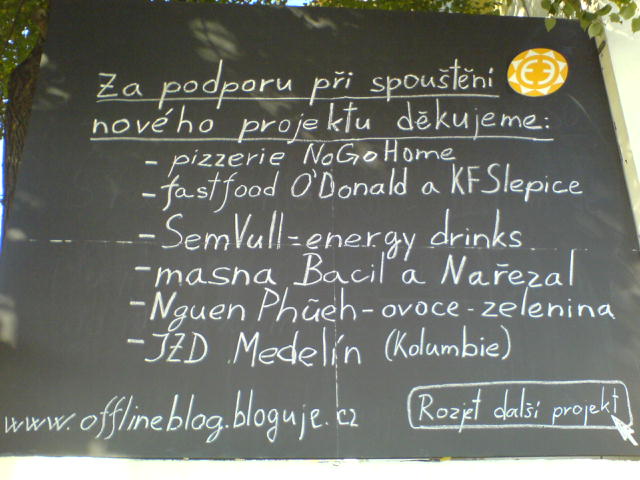 Za podporu při spouštění
nového projektu děkujeme:
- pizzerie NoGoHome
- fastfood O'Donald a KFSlepice
- SemVull=energy drinks
- masna Bacil a Nařezal
- Nguen Phűeh - ovoce - zelenina
- JZD Medelín (Kolumbie)
www.offlineblog.bloguje.cz
Rozjet další projekt